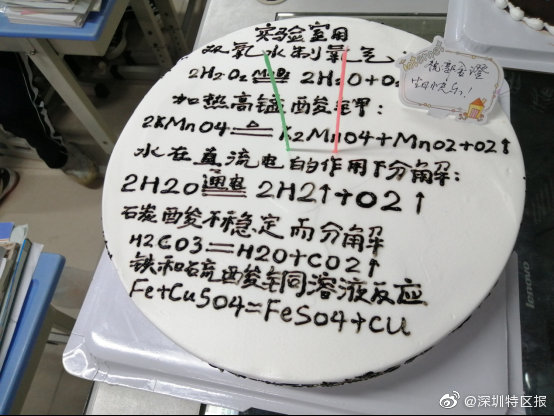 实验室用
双氧水制氧气:
2H2O2 2H2O+O2
加热高锰酸钾:
2KMnO4 ≜ K2MnO4+MnO2+O2↑
水在直流电的作用下分解:
2H2O 通电 2H2↑+O2↑
石炭酸不稳定而分解
H2CO3=H2O+CO2↑
铁和硫酸铜溶液反应
Fe+CuSO4=FeSO4+Cu
祝 澄
生日快乐!!
lenovo
@深圳特区报